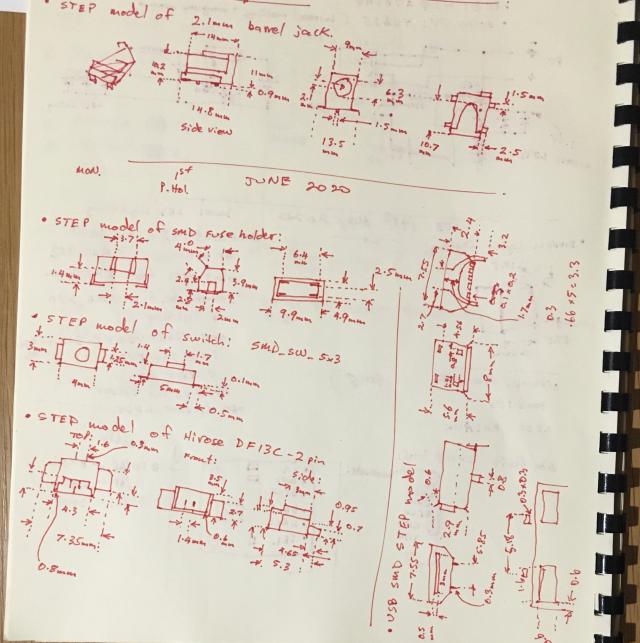 • STEP model of 2.1mm barrel jack.
14mm
10.2 mm
11 mm
0.9mm
14.8 mm
side view
9mm
6.3 mm
1.5mm
13.5 mm
1.5mm
10.7 mm
2.5 mm
MON. 1st JUNE 2020
P.Hol.
• STEP model of SMD Fuse holder:
3.7
1.4mm
2.1mm
4mm
3.9mm
2mm
6.4 mm
2.5mm
9.9mm
4.9mm
• STEP model of switch: SMD_SW_5x3
3mm
4mm
1.4
1.7 mm
5mm
0.1mm
0.5mm
• STEP model of Hirose DF13C-2pin
TOP:
1.6
0.3mm
4.3
7.35mm
0.8mm
Front:
1.4mm
0.6 mm
side:
0.95
0.7
4.65
5.3
• USB SMD STEP model
3.2
1.7mm
0.3
5.6 mm
8mm
0.6
0.8
7.55
5.85
0.3mm
0.5 mm
0.3x0.3
0.6